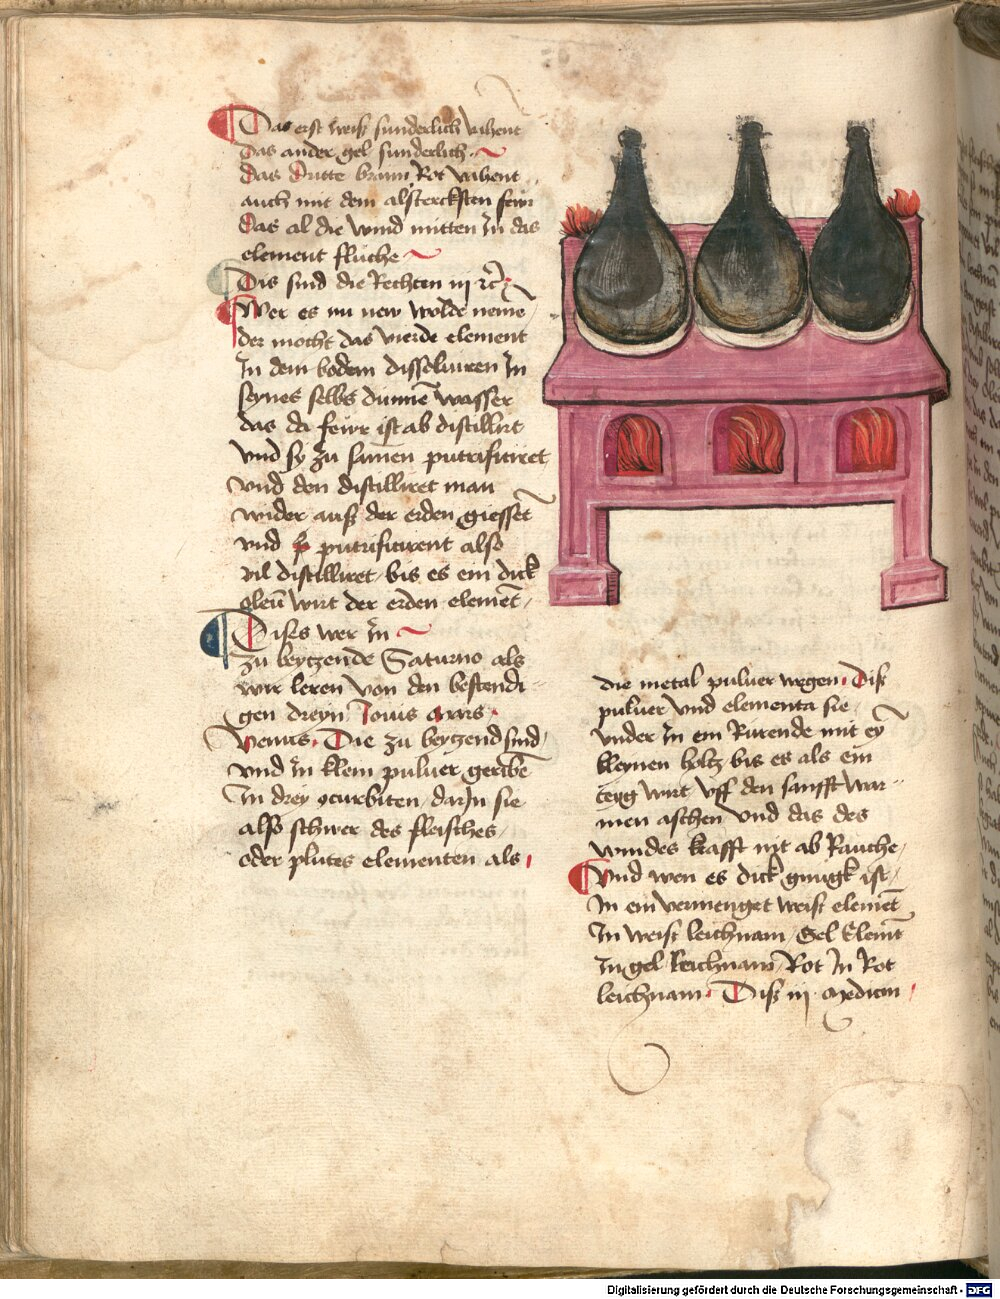 Das erst weiß sunderlich vahent
das ander gel sunderlich
das dritte brawn Rot vahent
auch mit dem alstercksten fewr
Das al die wind mitten In das
element fluche
Dis sind die Rechten iij
Wer es nu new wolde neme
der mocht das vierde element
In dem bodem dissoluiren In
seynes selbs dunnē wasser
das da fewr ist ab distillirt
vnd sy zu samen putrificiret
vnd den distilliret man
wider auß der erden giesset
vnd putrificirent also
vil distilliret bis es ein dick
oleū wirt der erden element
Dises wer In
zu beytzende Saturno als
wir leren von den bestendi
gen dreyn Iouis Mars
Venus Die zu beytzend sind
vnd In klein puluer geribē
In drey cucurbiten darIn sie
also schwer des fleisches
oder plutes elementen als
die metal puluer wegen Diß
puluer vnd elementa sie
vnder In ein Rurende mit eȳ
kleynen holtz bis es als ein
teyg wirt vff den sanfft war
men aschen vnd das des
windes krafft nit ab Rauche
Vnd wen es dick gnugk ist
In ein vermenget weist elemēt
In weist leichnam Gel Elemēt
In gel leichnam Rot In Rot
leichnam Diß iij medicin
Digitalisierung gefördert durch die Deutsche Forschungsgemeinschaft - DFG